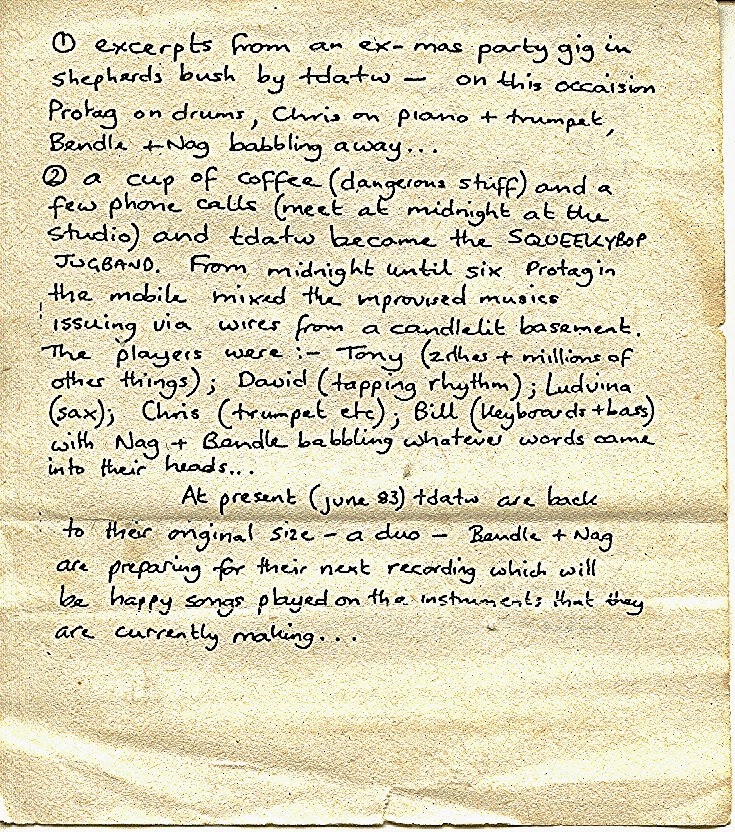 ① excerpts from an ex-mas party gig in
shepherds bush by tdatw — on this occaision
Protag on drums, Chris on piano + trumpet,
Bendle + Nag babbling away...
② a cup of coffee (dangerous stuff) and a
few phone calls (meet at midnight at the
studio) and tdatw became the SQUEEKYBOP
JUGBAND. From midnight until six Protag in
the mobile mixed the improvised musics
issuing via wires from a candlelit basement.
The players were :- Tony (zithes + millions of
other things); David (tapping rhythm); Ludvina
(sax); Chris (trumpet etc); Bill (keyboards + bass)
with Nag + Bendle babbling whatever words came
into their heads...
At present (june 83) tdatw are back
to their original size - a duo - Bendle + Nag
are preparing for their next recording which will
be happy songs played on the instruments that they
are currently making...